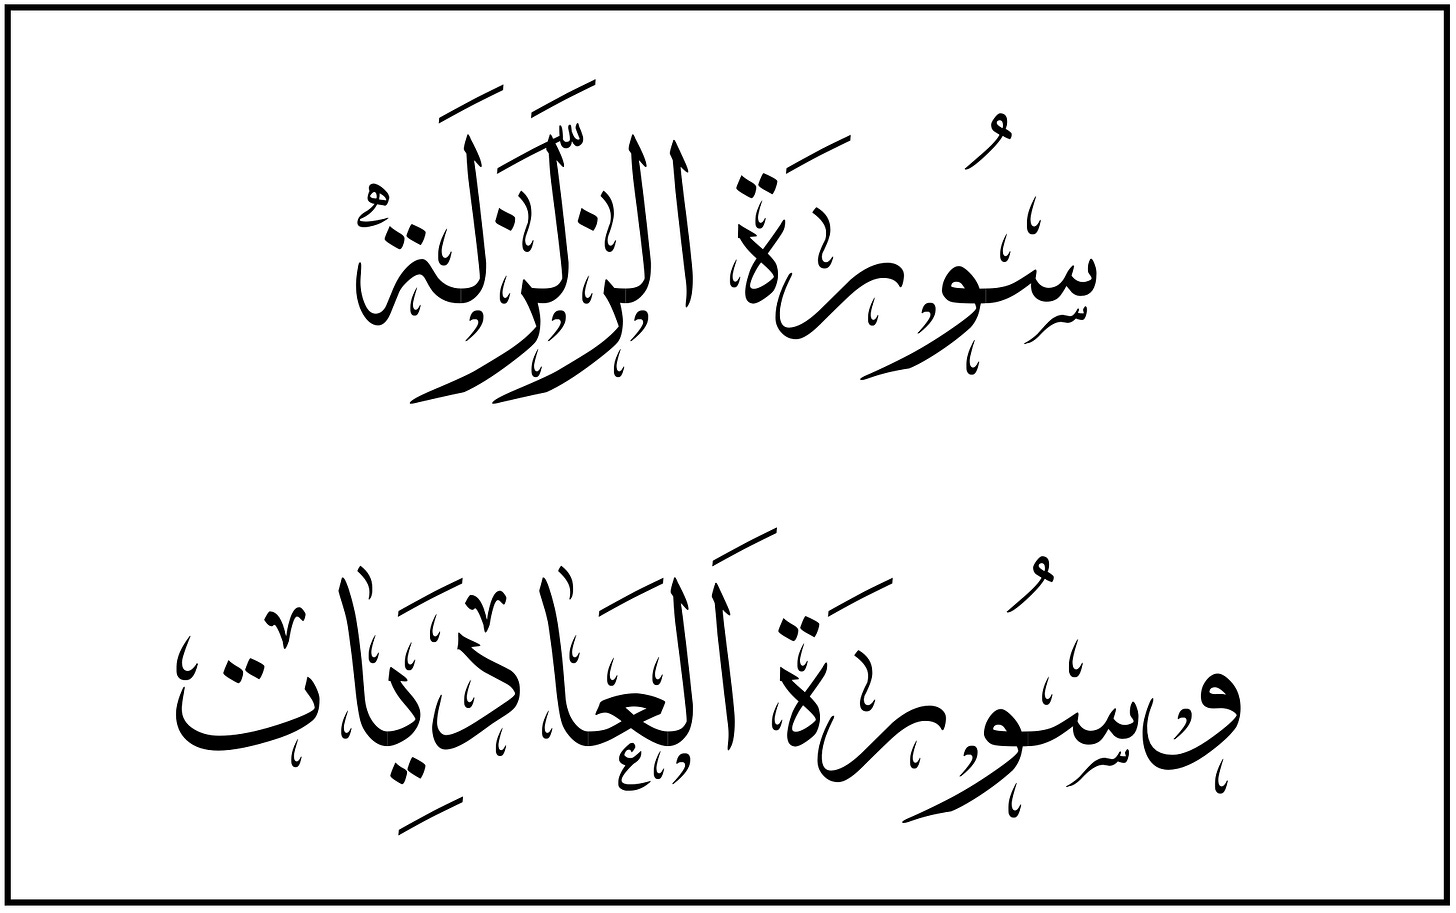 سُورَة الزَّلزَلَةُ
وسُورَة اَلعَاديَِات